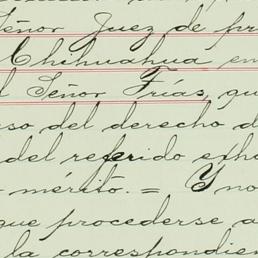 Señor Juez de pr
Chihuahua en
l Señor Frías, qu
so del derecho d
del referido exho
mérito. = Y no
que procederse a
la correspondien